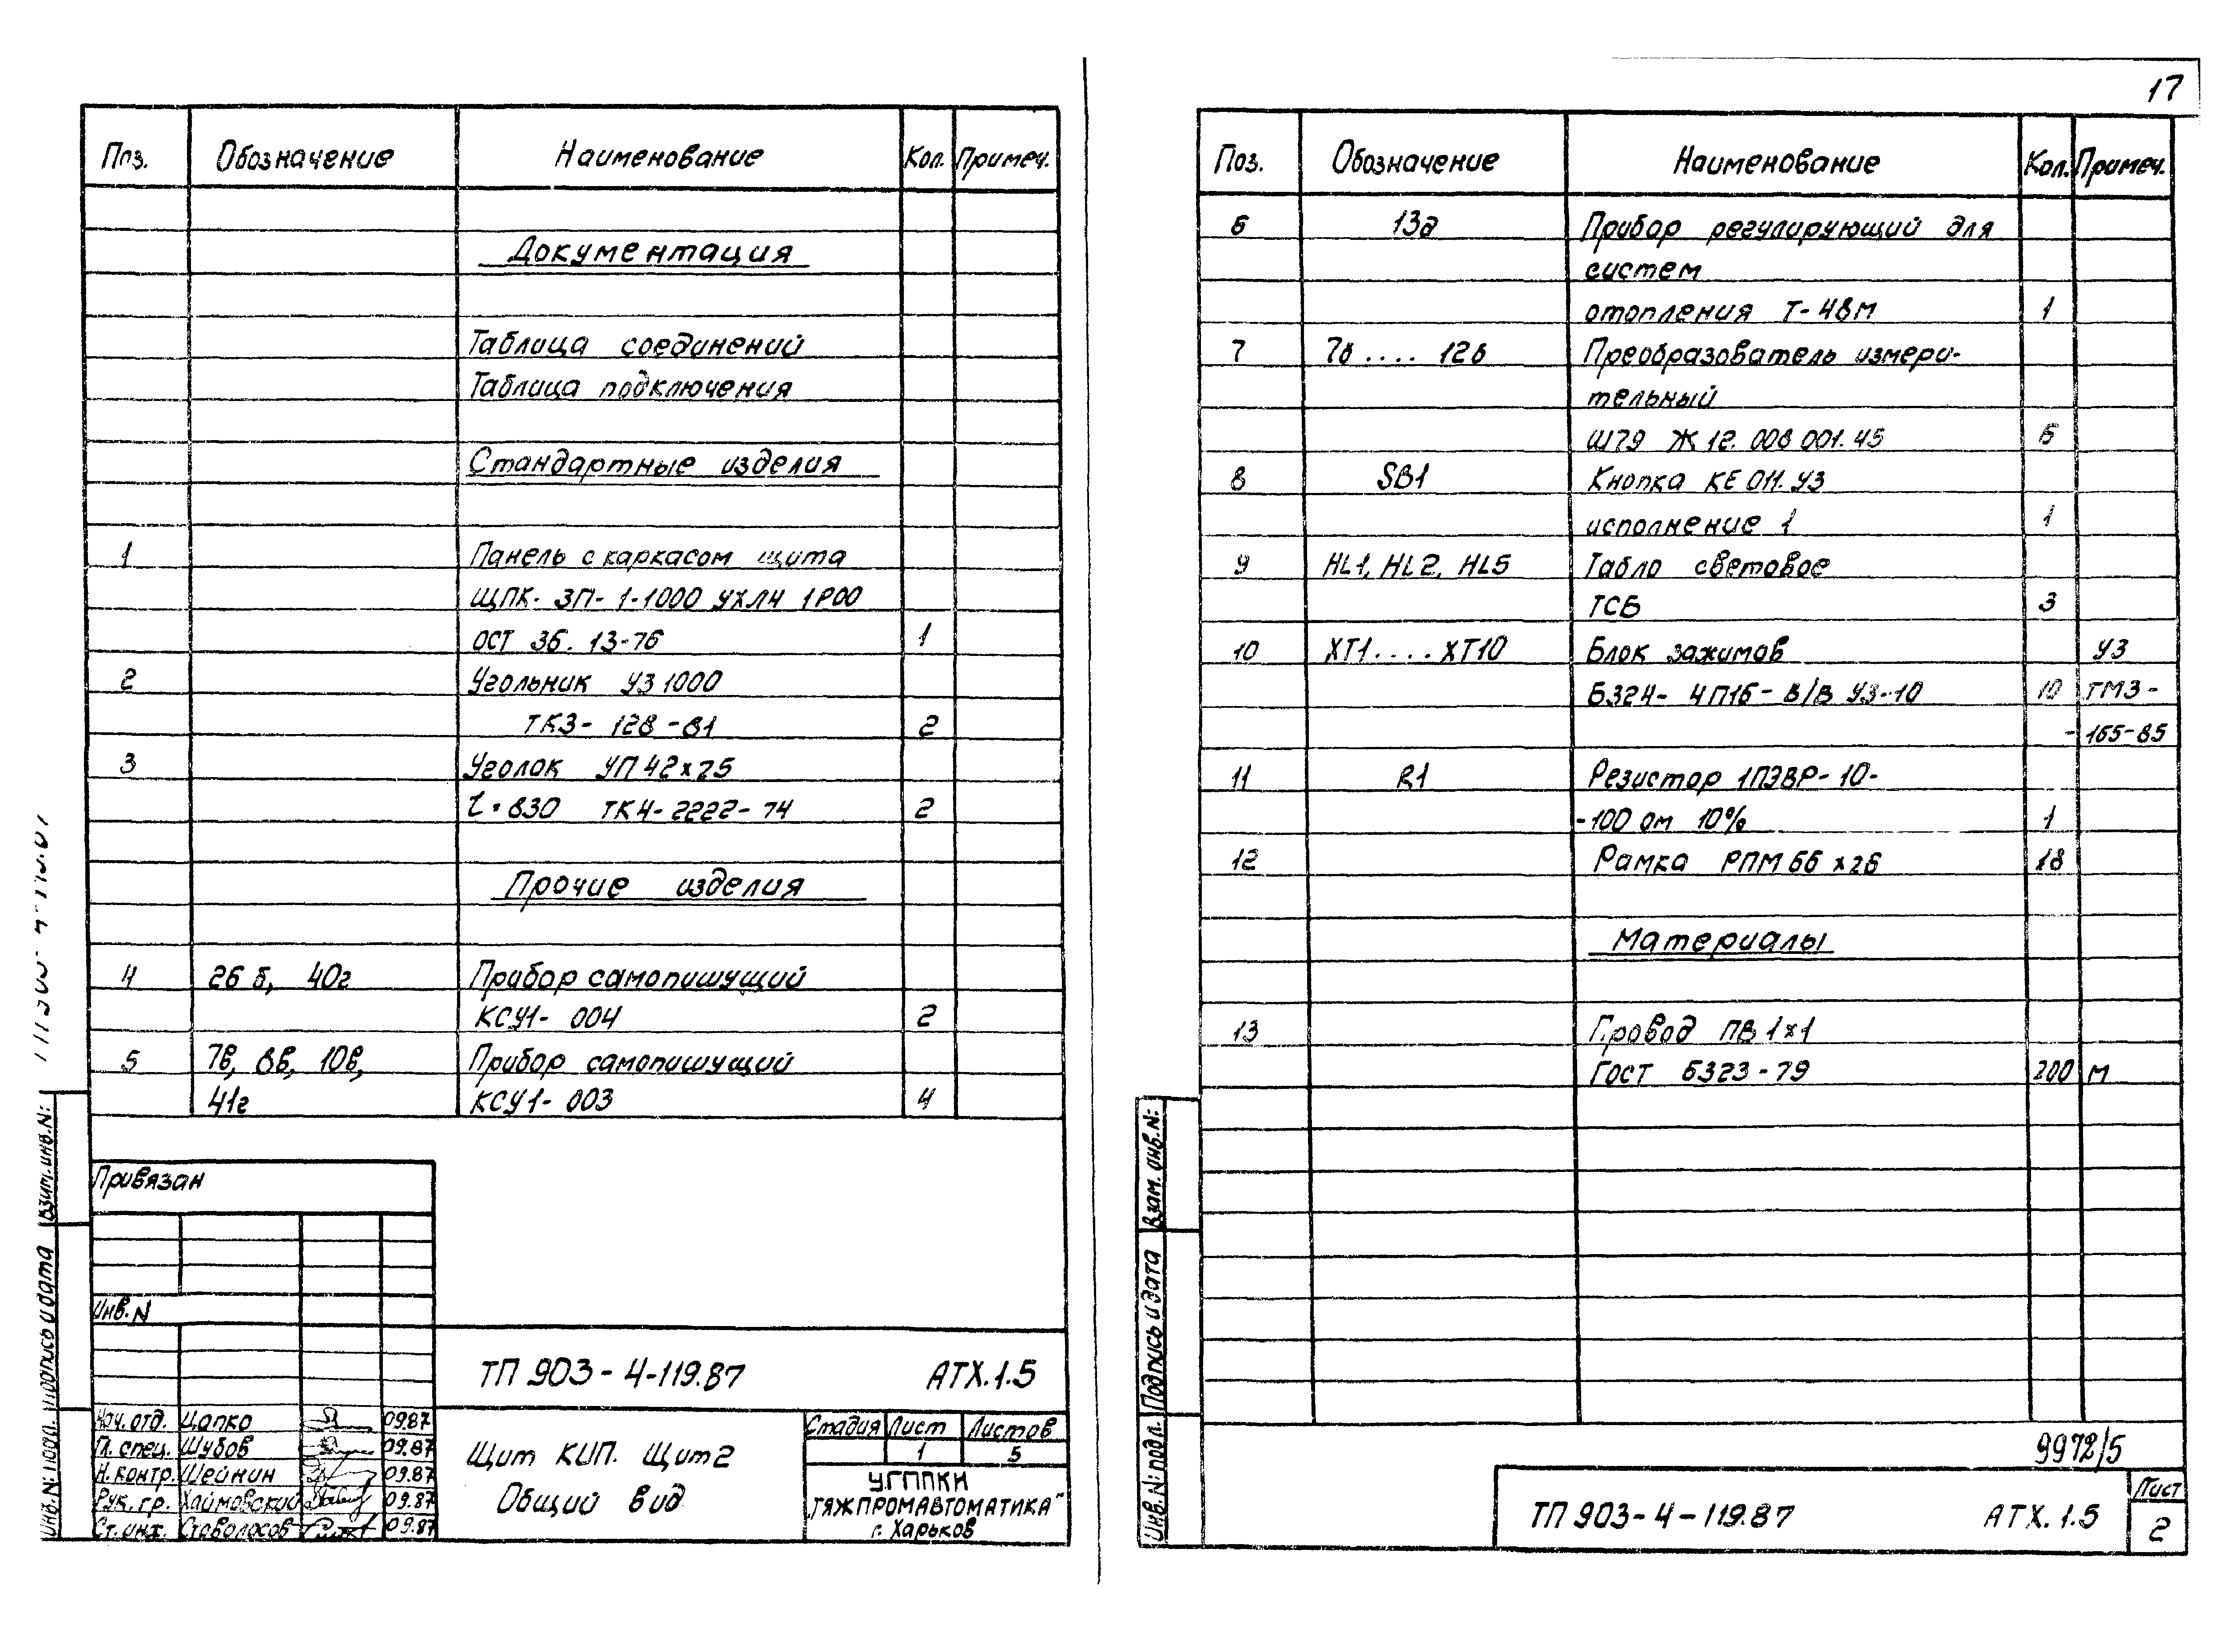 17
Поз. Обозначение Наименование Кол. Примеч.
Документация
Таблица соединений
Таблица подключения
Стандартные изделия
1 Панель с каркасом щита
ЩПК-ЗП-1-1000 УХЛ4 1Р00
ОСТ 36.13-76 1
2 Угольник УЗ 1000
ТКЗ-128-81 2
3 Уголок УП 42х25
l=830 ТК4-2222-74 2
Прочие изделия
4 26б, 40г Прибор самопишущий
КСУ1-004 2
5 7в, 8в, 10в, Прибор самопишущий
41г КСУ1-003 4
Привязан
Инв. N
ТП 903-4-119.87 АТХ.1.5
Нач. отд. Цапко 09.87
Гл. спец. Шубов 09.87
Н. контр. Шейнин 09.87
Рук. гр. Хаймовский 09.87
Ст. инж. 09.87
Щит КИП. Щит 2
Общий вид
Стадия Лист Листов
1 5
УГППКИ
"ТЯЖПРОМАВТОМАТИКА"
г. Харьков
Инв. N: подл. Подпись и дата Взам. инв. N:
Поз. Обозначение Наименование Кол. Примеч.
6 13д Прибор регулирующий для
систем
отопления Т-48М 1
7 7б....12б Преобразователь измери-
тельный
Ш79 Ж 12.008 001.45 6
8 SB1 Кнопка КЕ 011.У3
исполнение 1 1
9 HL1, HL2, HL5 Табло световое
ТСБ 3
10 ХТ1....ХТ10 Блок зажимов У3
Б324-4П16-В/В У3-10 10 ТМ3-
-165-85
11 R1 Резистор 1ПЭВР-10-
-100 ом 10% 1
12 Рамка РПМ 66х26 18
Материалы
13 Провод ПВ 1х1
ГОСТ 6323-79 200 м
9972/5
ТП 903-4-119.87 АТХ.1.5
Лист
2
Инв. N: подл. Подпись и дата Взам. инв. N: